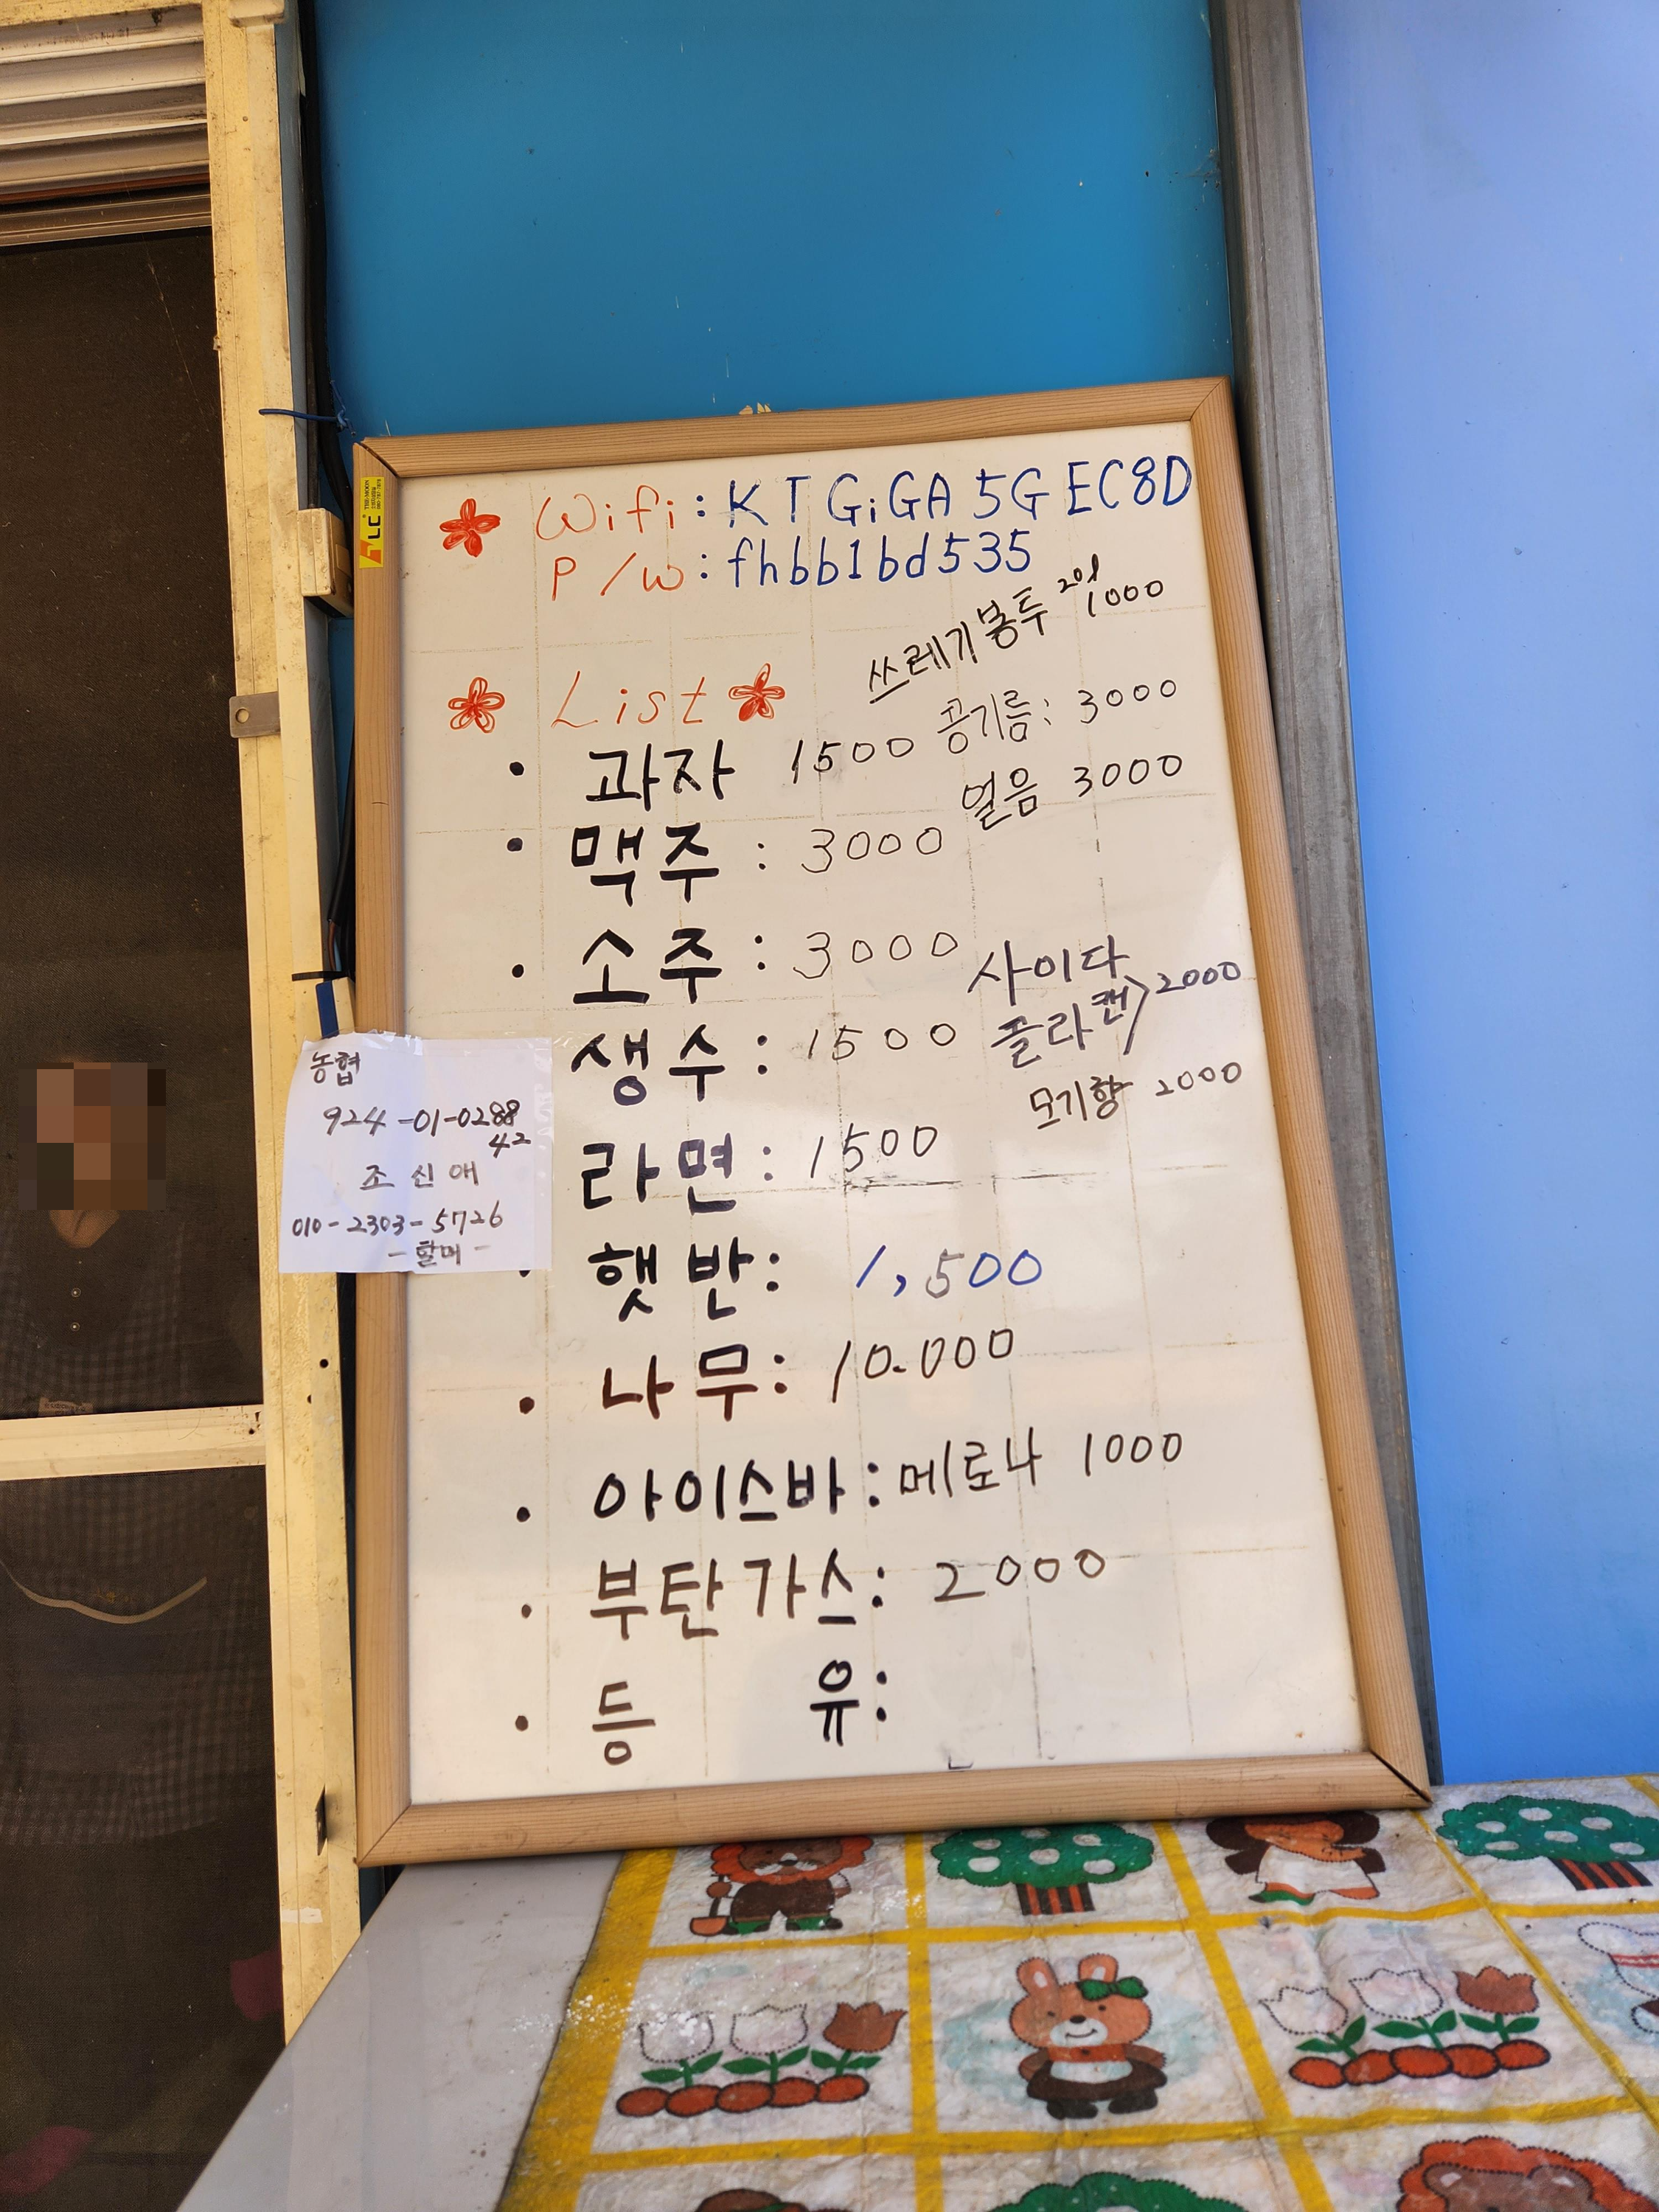 Wifi: KT GiGA 5G EC8D
P/W: fhbb1bd535
쓰레기봉투 20l 1000
List
과자 1500
공기름: 3000
얼음 3000
맥주: 3000
소주: 3000
사이다
콜라 캔 2000
생수: 1500
모기향 2000
라면: 1500
햇반: 1,500
나무: 10.000
아이스바: 메로나 1000
부탄가스: 2000
등 유:
농협
924-01-0288
42
조신애
010-2303-5726
- 할머 -